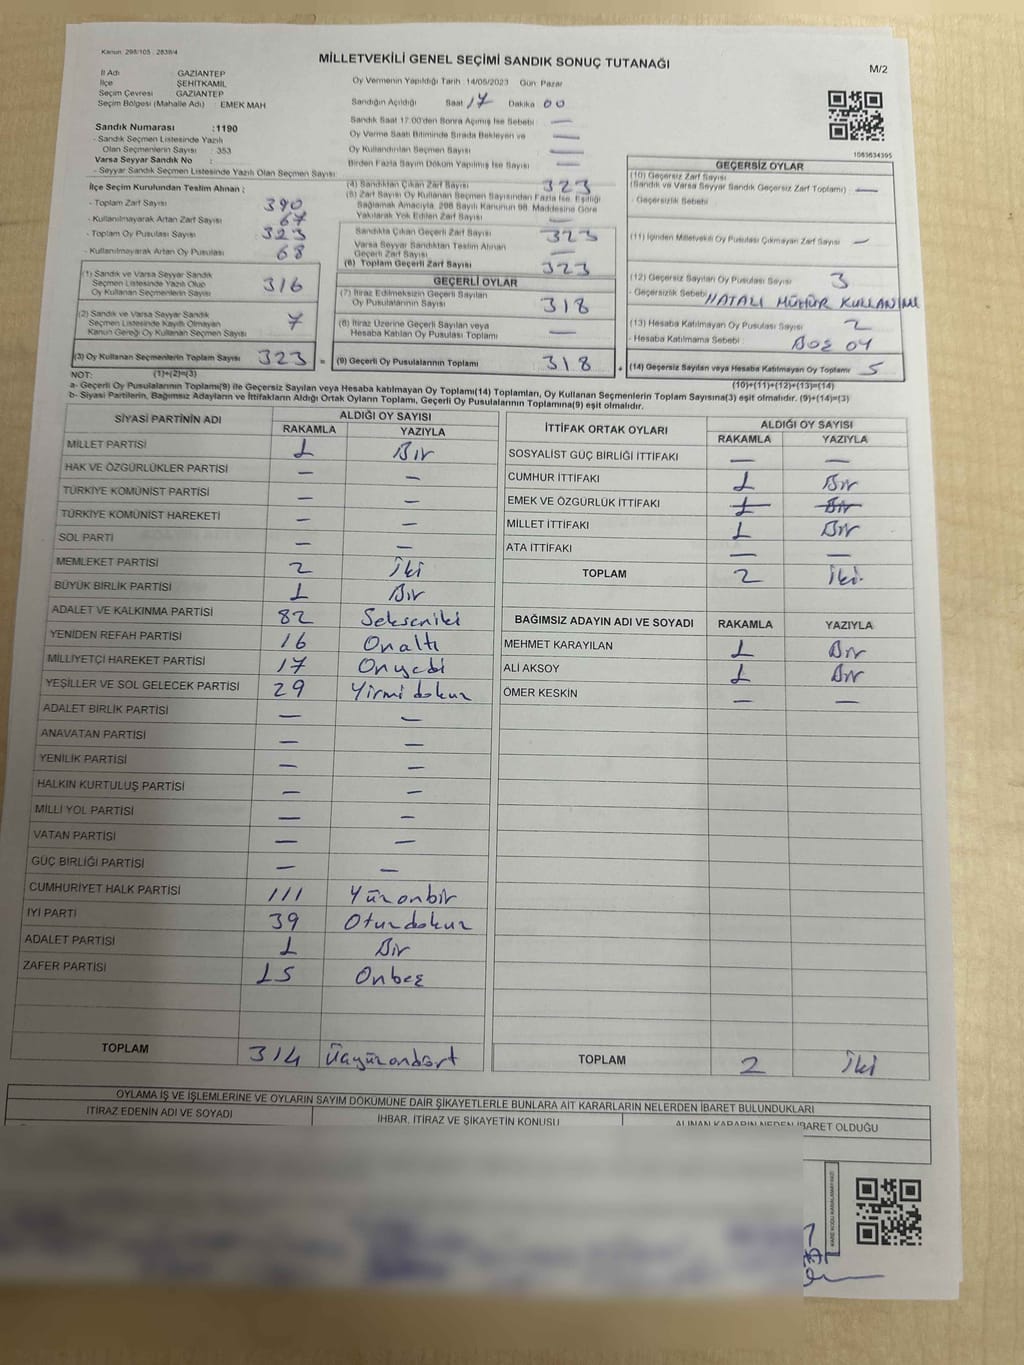 Kanun: 298/105 , 2839/4
MİLLETVEKİLİ GENEL SEÇİMİ SANDIK SONUÇ TUTANAĞI
M/2
İl Adı : GAZİANTEP
İlçe : ŞEHİTKAMİL
Seçim Çevresi : GAZİANTEP
Seçim Bölgesi (Mahalle Adı) : EMEK MAH
Oy Vermenin Yapıldığı Tarih :14/05/2023 Gün: Pazar
Sandığın Açıldığı Saat 17 Dakika 00
Sandık Saat 17:00'den Sonra Açılmış İse Sebebi : —
Oy Verme Saati Bitiminde Sırada Bekleyen ve —
Oy Kullandırılan Seçmen Sayısı —
Birden Fazla Sayım Döküm Yapılmış İse Sayısı —
Sandık Numarası :1190
- Sandık Seçmen Listesinde Yazılı
Olan Seçmenlerin Sayısı : 353
Varsa Seyyar Sandık No :
- Seyyar Sandık Seçmen Listesinde Yazılı Olan Seçmen Sayısı:
1083634395
İlçe Seçim Kurulundan Teslim Alınan ;
- Toplam Zarf Sayısı 390
- Kullanılmayarak Artan Zarf Sayısı 67
- Toplam Oy Pusulası Sayısı 323
- Kullanılmayarak Artan Oy Pusulası 68
(1) Sandık ve Varsa Seyyar Sandık
Seçmen Listesinde Yazılı Olup
Oy Kullanan Seçmenlerin Sayısı 316
(2) Sandık ve Varsa Seyyar Sandık
Seçmen Listesinde Kayıtlı Olmayan
Kanun Gereği Oy Kullanan Seçmen Sayısı 7
(3) Oy Kullanan Seçmenlerin Toplam Sayısı 323 =
(4) Sandıktan Çıkan Zarf Sayısı 323
(5) Zarf Sayısı Oy Kullanan Seçmen Sayısından Fazla İse, Eşitliği
Sağlamak Amacıyla, 298 Sayılı Kanunun 98. Maddesine Göre
Yakılarak Yok Edilen Zarf Sayısı —
Sandıkta Çıkan Geçerli Zarf Sayısı 323
Varsa Seyyar Sandıktan Teslim Alınan
Geçerli Zarf Sayısı —
(6) Toplam Geçerli Zarf Sayısı 323
GEÇERLİ OYLAR
(7) İtiraz Edilmeksizin Geçerli Sayılan
Oy Pusulalarının Sayısı 318
(8) İtiraz Üzerine Geçerli Sayılan veya
Hesaba Katılan Oy Pusulaları Toplamı —
(9) Geçerli Oy Pusulalarının Toplamı 318 +
GEÇERSİZ OYLAR
(10) Geçersiz Zarf Sayısı
(Sandık ve Varsa Seyyar Sandık Geçersiz Zarf Toplamı) : —
- Geçersizlik Sebebi :
(11) İçinden Milletvekili Oy Pusulası Çıkmayan Zarf Sayısı —
(12) Geçersiz Sayılan Oy Pusulası Sayısı : 3
- Geçersizlik Sebebi: HATALI MÜHÜR KULLANIMI
(13) Hesaba Katılmayan Oy Pusulası Sayısı : 2
- Hesaba Katılmama Sebebi : BOŞ OY
(14) Geçersiz Sayılan veya Hesaba Katılmayan Oy Toplamı 5
NOT: (1)+(2)=(3)
(10)+(11)+(12)+(13)=(14)
a- Geçerli Oy Pusulalarının Toplamı(9) ile Geçersiz Sayılan veya Hesaba katılmayan Oy Toplamı(14) Toplamları, Oy Kullanan Seçmenlerin Toplam Sayısına(3) eşit olmalıdır. (9)+(14)=(3)
b- Siyasi Partilerin, Bağımsız Adayların ve İttifakların Aldığı Ortak Oyların Toplamı, Geçerli Oy Pusulalarının Toplamına(9) eşit olmalıdır.
SİYASİ PARTİNİN ADI ALDIĞI OY SAYISI
RAKAMLA YAZIYLA
MİLLET PARTİSİ 1 Bir
HAK VE ÖZGÜRLÜKLER PARTİSİ — —
TÜRKİYE KOMÜNİST PARTİSİ — —
TÜRKİYE KOMÜNİST HAREKETİ — —
SOL PARTİ — —
MEMLEKET PARTİSİ 2 İki
BÜYÜK BİRLİK PARTİSİ 1 Bir
ADALET VE KALKINMA PARTİSİ 82 Sekseniki
YENİDEN REFAH PARTİSİ 16 Onaltı
MİLLİYETÇİ HAREKET PARTİSİ 17 Onyedi
YEŞİLLER VE SOL GELECEK PARTİSİ 29 Yirmidokuz
ADALET BİRLİK PARTİSİ — —
ANAVATAN PARTİSİ — —
YENİLİK PARTİSİ — —
HALKIN KURTULUŞ PARTİSİ — —
MİLLİ YOL PARTİSİ — —
VATAN PARTİSİ — —
GÜÇ BİRLİĞİ PARTİSİ — —
CUMHURİYET HALK PARTİSİ 111 Yüzonbir
İYİ PARTİ 39 Otuzdokuz
ADALET PARTİSİ 1 Bir
ZAFER PARTİSİ 15 Onbeş
TOPLAM 314 Üçyüzondört
İTTİFAK ORTAK OYLARI ALDIĞI OY SAYISI
RAKAMLA YAZIYLA
SOSYALİST GÜÇ BİRLİĞİ İTTİFAKI — —
CUMHUR İTTİFAKI 1 Bir
EMEK VE ÖZGÜRLÜK İTTİFAKI 1 Bir
MİLLET İTTİFAKI 1 Bir
ATA İTTİFAKI — —
TOPLAM 2 İki
BAĞIMSIZ ADAYIN ADI VE SOYADI RAKAMLA YAZIYLA
MEHMET KARAYILAN 1 Bir
ALİ AKSOY 1 Bir
ÖMER KESKİN — —
TOPLAM 2 İki
OYLAMA İŞ VE İŞLEMLERİNE VE OYLARIN SAYIM DÖKÜMÜNE DAİR ŞİKAYETLERLE BUNLARA AİT KARARLARIN NELERDEN İBARET BULUNDUKLARI
İTİRAZ EDENİN ADI VE SOYADI İHBAR, İTİRAZ VE ŞİKAYETİN KONUSU ALINAN KARARIN NEDEN İBARET OLDUĞU